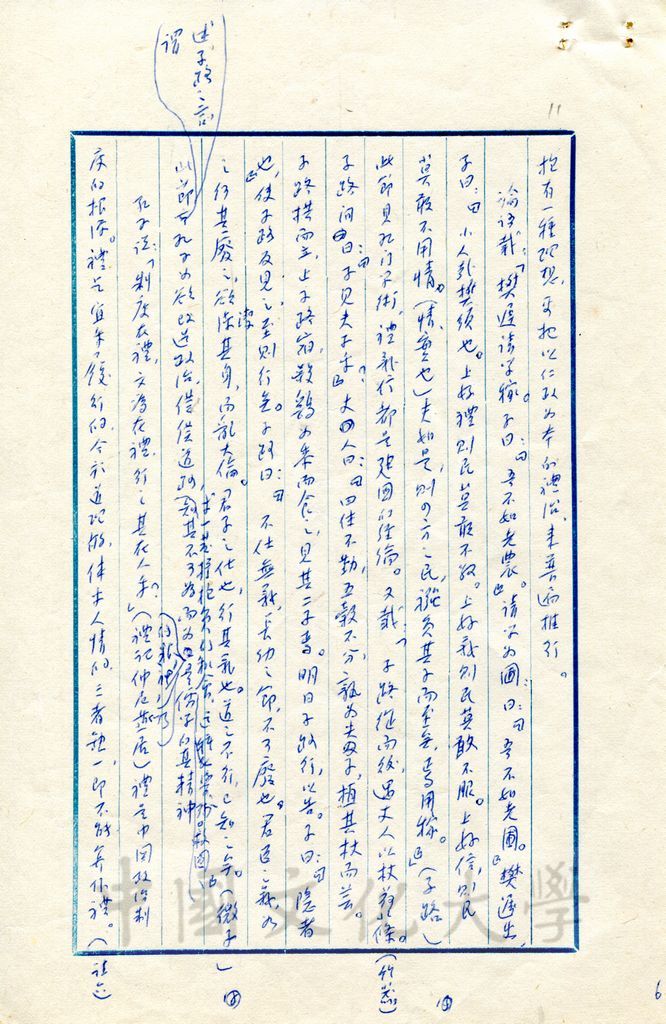 抱有一種理想,要把以仁政為本的禮治,來普遍推行。
論語載:「樊遲請學稼。子曰:『吾不如老農。』請學為圃,曰:『吾不如老圃。』樊遲出,
子曰:『小人哉樊須也。上好禮則民莫敢不敬。上好義則民莫敢不服。上好信,則民
莫敢不用情。(情,實也)夫如是,則四方之民,襁負其子而至矣,焉用稼。』」(子路)
此節見孔門學術,禮義信都是建國的經綸。又載:「子路從而後,遇丈人以杖荷蓧。(竹蓧)
子路問曰:『子見夫子乎?』丈人曰:『四体不勤,五穀不分,孰為夫子,植其杖而芸。
子路拱而立,止子路宿,殺雞為黍而食之,見其二子焉。明日子路行,以告。子曰:『隱者
也,使子路反見之,至則行矣。子路曰:『不仕無義,長幼之節,不可廢也。君臣之義,如
之何其廢之,欲潔其身,而亂大倫。君子之仕也,行其義也。道之不行,已知之矣。(微子)」
述子路之言
謂
此節
孔子為欲改造政治,
知其不可為而為
是儒家的真精神
孔子說:「制度在禮,文為在禮,行之其在人乎?」(禮記仲尼燕居)禮是中國政治制
度的根源。禮是宜乎履行的,合於道理的,体乎人情的,三者缺一,即不能算作禮。(註六)
11
6
中國文化大學